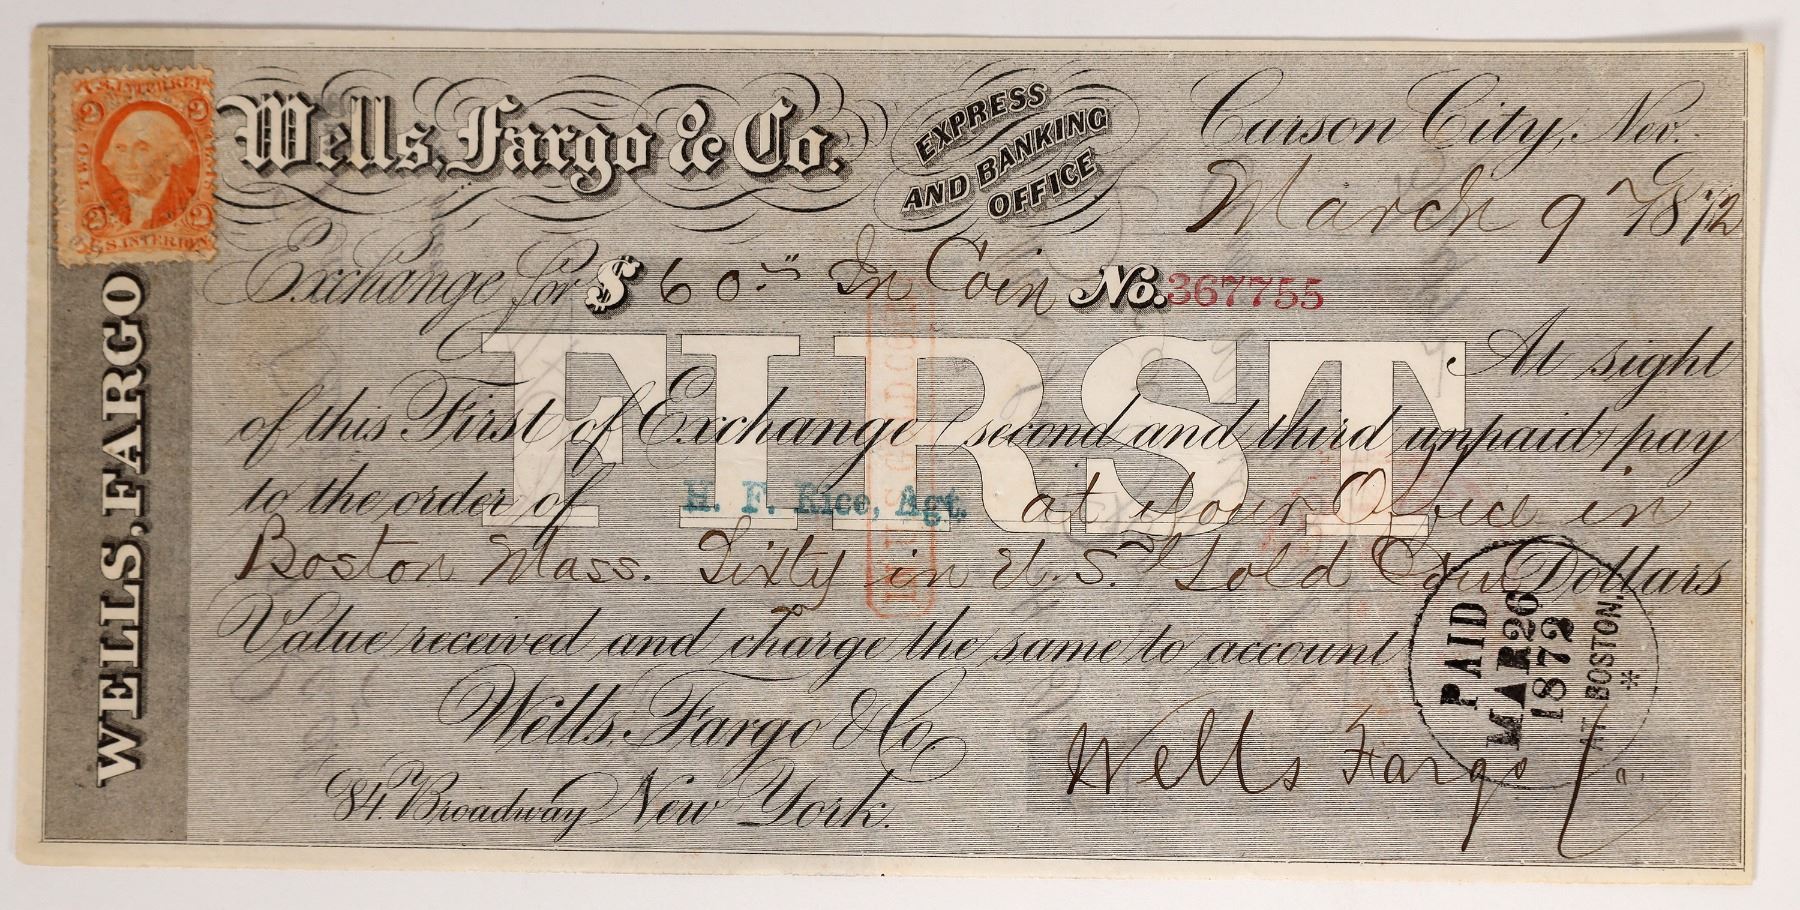 U.S. INTER. REV.
2 2
TWO CENTS
2 2
U.S. INTER. REV.
WELLS, FARGO
Wells, Fargo & Co.
EXPRESS
AND BANKING
OFFICE
Carson City, Nev.
March 9 1872
Exchange for $ 60.⁰⁰ In Coin No. 367755
FIRST
At sight
of this First of Exchange second and third unpaid, pay
to the order of H. F. Rice, Agt. at your Office in
Boston Mass. Sixty in U. S. Gold Coin Dollars
IN U.S. GOLD COIN
Value received and charge the same to account
Wells, Fargo & Co.
84. Broadway New York.
Wells Fargo
PAID
MAR 26
1872
AT BOSTON.
*